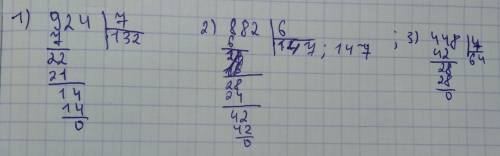 1) 924 | 7
7 132
22
21
14
14
0
2) 882 | 6
6 147; 147
28
24
42
42
0
; 3) 448 | 7
42 64
28
28
0